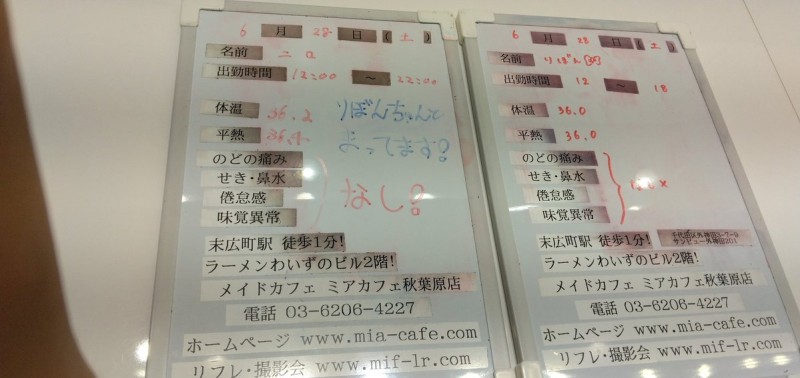 6 月 28 日 (土)
名前 ニロ
出勤時間 12:00 ～ 22:00
体温 36.2
平熱 36.4
りぼんちゃんと
まってます?
のどの痛み
せき・鼻水
倦怠感
味覚異常
なし?
末広町駅 徒歩1分!
ラーメンわいずのビル2階!
メイドカフェ ミアカフェ秋葉原店
電話 03-6206-4227
ホームページ www.mia-cafe.com
リフレ・撮影会 www.mif-lr.com
6 月 28 日 (土)
名前 りぼん
出勤時間 12 ～ 18
体温 36.0
平熱 36.0
のどの痛み
せき・鼻水
倦怠感
味覚異常
末広町駅 徒歩1分!
千代田区外神田3-7-9
サンビュー外神田201
ラーメンわいずのビル2階!
メイドカフェ ミアカフェ秋葉原店
電話 03-6206-4227
ホームページ www.mia-cafe.com
リフレ・撮影会 www.mif-lr.com